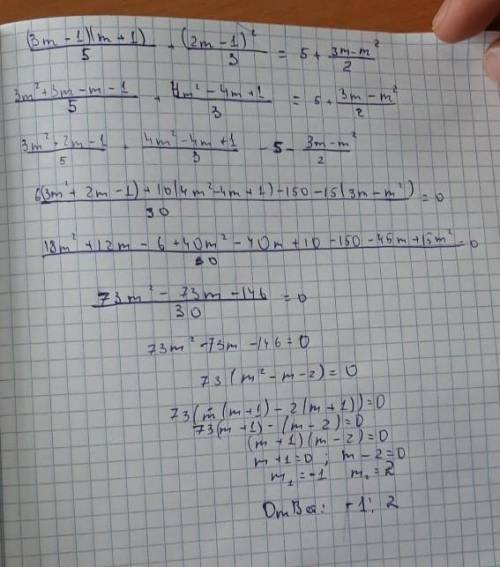 (3m-1)(m+1)/5 + (2m-1)²/3 = 5 + (3m-m²)/2
(3m²+3m-m-1)/5 + (4m²-4m+1)/3 = 5 + (3m-m²)/2
(3m²+2m-1)/5 + (4m²-4m+1)/3 - 5 - (3m-m²)/2
(6(3m²+2m-1)+10(4m²-4m+1)-150-15(3m-m²))/30 = 0
(18m²+12m-6+40m²-40m+10-150-45m+15m²)/30 = 0
(73m²-73m-146)/30 = 0
73m²-73m-146=0
73(m²-m-2)=0
73(m(m+1)-2(m+1))=0
73(m+1)-(m-2)=0
(m+1)(m-2)=0
m+1=0; m-2=0
m₁=-1 m₂=2
Ответ: -1; 2